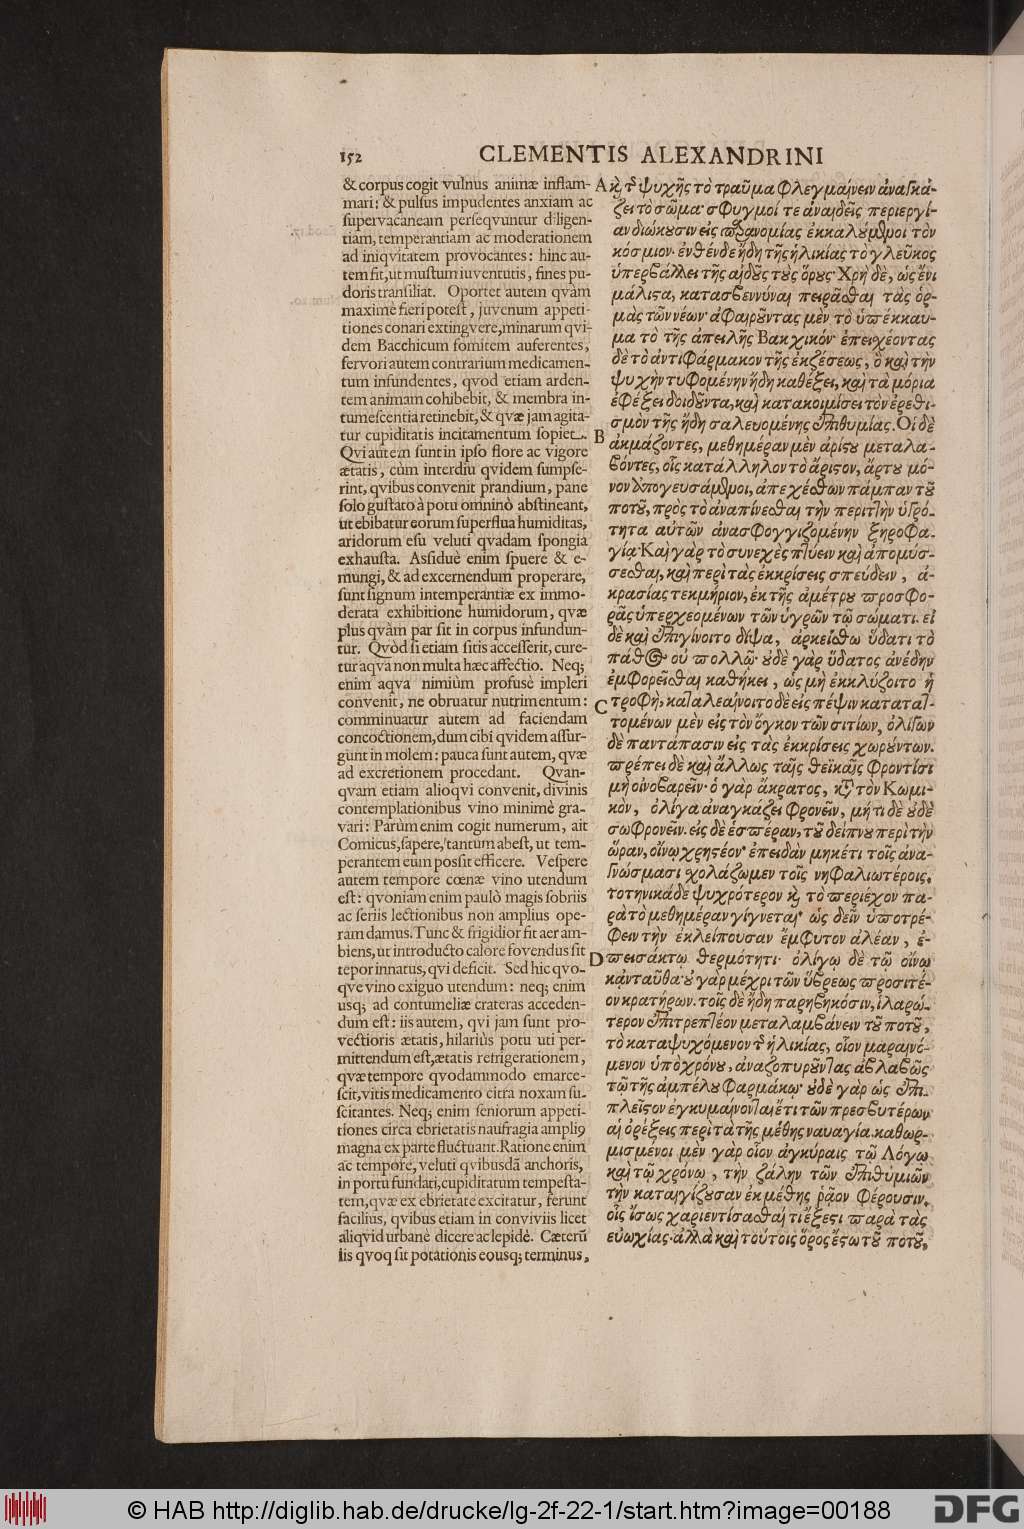 152
CLEMENTIS ALEXANDRINI
& corpus cogit vulnus animæ inflam-
mari: & pulsus impudentes anxiam ac
supervacaneam perseqvuntur diligen-
tiam, temperantiam ac moderationem
ad iniqvitatem provocantes: hinc au-
tem fit, ut mustum iuventutis, fines pu-
doris transiliat. Oportet autem qvàm
maximè fieri potest, juvenum appeti-
tiones conari extingvere, minarum qvi-
dem Bacchicum fomitem auferentes,
fervori autem contrarium medicamen-
tum infundentes, qvod etiam arden-
tem animam cohibebit, & membra in-
tumescentia retinebit, & qvæ jam agita-
tur cupiditatis incitamentum sopiet.
Qvi autem sunt in ipso flore ac vigore
ætatis, cùm interdiu qvidem sumpse-
rint, qvibus convenit prandium, pane
solo gustato à potu omninò abstineant,
ut ebibatur eorum superflua humiditas,
aridorum esu veluti qvadam spongia
exhausta. Assiduè enim spuere & e-
mungi, & ad excernendum properare,
sunt signum intemperantiæ ex immo-
derata exhibitione humidorum, qvæ
plus qvàm par sit in corpus infundun-
tur. Qvòd si etiam sitis accesserit, cure-
tur aqva non multa hæc affectio. Neq;
enim aqva nimiùm profusè impleri
convenit, ne obruatur nutrimentum:
comminuatur autem ad faciendam
concoctionem, dum cibi qvidem assur-
gunt in molem: pauca sunt autem, qvæ
ad excretionem procedant. Qvan-
qvam etiam alioqvi convenit, divinis
contemplationibus vino minimè gra-
vari: Parùm enim cogit numerum, ait
Comicus, sapere, tantum abest, ut tem-
perantem eum possit efficere. Vespere
autem tempore cœnæ vino utendum
est: qvoniam enim paulò magis sobriis
ac seriis lectionibus non amplius ope-
ram damus. Tunc & frigidior fit aer am-
biens, ut introducto calore fovendus sit
tepor innatus, qvi deficit. Sed hic qvo-
qve vino exiguo utendum: neq; enim
usq; ad contumeliæ crateras acceden-
dum est: iis autem, qvi jam sunt pro-
vectioris ætatis, hilariùs potu uti per-
mittendum est, ætatis refrigerationem,
qvæ tempore qvodammodo emarce-
scit, vitis medicamento citra noxam su-
scitantes. Neq; enim seniorum appeti-
tiones circa ebrietatis naufragia ampli9
magna ex parte fluctuant. Ratione enim
ac tempore, veluti qvibusdã anchoris,
in portu fundati, cupiditatum tempesta-
tem, qvæ ex ebrietate excitatur, ferunt
facilius, qvibus etiam in conviviis licet
aliqvid urbanè dicere ac lepidè. Cæterũ
iis qvoq sit potationis eousq; terminus,
A
κ τ ψυχῆς τὸ τραῦμα φλεγμαίνειν ἀναγκά-
ζει τὸ σῶμα· σφυγμοί τε ἀναιδεῖς περιεργί-
αν διώκουσιν εἰς παρανομίας ἐκκαλούμενοι τὸν
κόσμιον· ἐνθένδε ἤδη τῆς ἡλικίας τὸ γλεῦκος
ὑπερβάλλει τῆς αἰδοῦς τοὺς ὅρους· Χρὴ δὲ, ὡς ἔνι
μάλιστα, κατασβεννύναι πειρᾶσθαι τὰς ὁρ-
μὰς τῶν νέων· ἀφαιροῦντας μὲν τὸ ὑπέκκαυ-
μα τὸ τῆς ἀπειλῆς Βακχικόν· ἐπειχέοντας
δὲ τὸ ἀντιφάρμακον τῆς ἐκζέσεως, ὃ καὶ τὴν
ψυχὴν τυφομένην ἤδη καθέξει, καὶ τὰ μόρια
ἐφέξει δοιδοῦντα, καὶ κατακοιμίσει τὸν ἐρεθι-
σμὸν τῆς ἤδη σαλευομένης ἐπιθυμίας. Οἱ δὲ
B
ἀκμάζοντες, μεθημέραν μὲν ἀρίστου μεταλα-
βόντες, οἷς κατάλληλον τὸ ἄριστον, ἄρτου μό-
νον ἀπογευσάμενοι, ἀπεχέσθων πάμπαν τοῦ
ποτοῦ, πρὸς τὸ ἀναπίνεσθαι τὴν περιττὴν ὑγρό-
τητα αὐτῶν ἀνασφογγιζομένην ξηροφα-
γίᾳ· Καὶ γὰρ τὸ συνεχὲς πτύειν καὶ ἀπομύσ-
σεσθαι, καὶ περὶ τὰς ἐκκρίσεις σπεύδειν, ἀ-
κρασίας τεκμήριον, ἐκ τῆς ἀμέτρου προσφο-
ρᾶς ὑπερχεομένων τῶν ὑγρῶν τῷ σώματι. εἰ
δὲ καὶ ἐπιγίνοιτο δίψα, ἀρκείσθω ὕδατι τὸ
πάθος οὐ πολλῷ· οὐδὲ γὰρ ὕδατος ἀνέδην
ἐμφορεῖσθαι καθήκει, ὡς μὴ ἐκκλύζοιτο ἡ
C
τροφὴ, καταλεαίνοιτο δὲ εἰς πέψιν καταταττ-
τομένων μὲν εἰς τὸν ὄγκον τῶν σιτίων, ὀλίγων
δὲ παντάπασιν εἰς τὰς ἐκκρίσεις χωρούντων.
πρέπει δὲ καὶ ἄλλως ταῖς θεϊκαῖς φροντίσι
μὴ οἰνοβαρεῖν· ὁ γὰρ ἄκρατος, κατὰ τὸν Κωμι-
κὸν, ὀλίγα ἀναγκάζει φρονεῖν, μήτι δὲ οὐδὲ
σωφρονεῖν. εἰς δὲ ἑσπέραν, τοῦ δείπνου περὶ τὴν
ὥραν, οἴνῳ χρηστέον· ἐπειδὰν μηκέτι τοῖς ἀνα-
γνώσμασι χολάζωμεν τοῖς νηφαλιωτέροις.
τοτηνικάδε ψυχρότερον κ τὸ περιέχον πα-
ρὰ τὸ μεθημέραν γίγνεται· ὡς δεῖν ὑποτρέ-
φειν τὴν ἐκλείπουσαν ἔμφυτον ἀλέαν, ἐ-
D
πεισάκτῳ θερμότητι· ὀλίγῳ δὲ τῷ οἴνῳ
κᾀνταῦθα· οὐ γὰρ μέχρι τῶν ὕβρεως προσιτέ-
ον κρατήρων. τοῖς δὲ ἤδη παρηβηκόσιν, ἱλαρώ-
τερον ἐπιτρεπτέον μεταλαμβάνειν τοῦ ποτοῦ,
τὸ καταψυχόμενον τ ἡλικίας, οἷον μαραινό-
μενον ὑπὸ χρόνου, ἀναζοπυροῦντας ἀβλαβῶς
τῷ τῆς ἀμπέλου φαρμάκῳ· οὐδὲ γὰρ ὡς ἐπι-
πλεῖστον ἐγκυμαίνονται ἔτι τῶν πρεσβυτέρων
αἱ ὀρέξεις περὶ τὰ τῆς μέθης ναυαγία. καθωρ-
μισμένοι μὲν γὰρ οἷον ἀγκύραις τῷ Λόγῳ
καὶ τῷ χρόνῳ, τὴν ζάλην τῶν ἐπιθυμιῶν
τὴν καταιγίζουσαν ἐκ μέθης ῥᾷον φέρουσιν.
οἷς ἴσως χαριεντίσασθαι τι ἔξεστι παρὰ τὰς
εὐωχίας· ἀλλὰ καὶ τούτοις ὅρος ἔστω τοῦ ποτοῦ,
© HAB http://diglib.hab.de/drucke/lg-2f-22-1/start.htm?image=00188
DFG